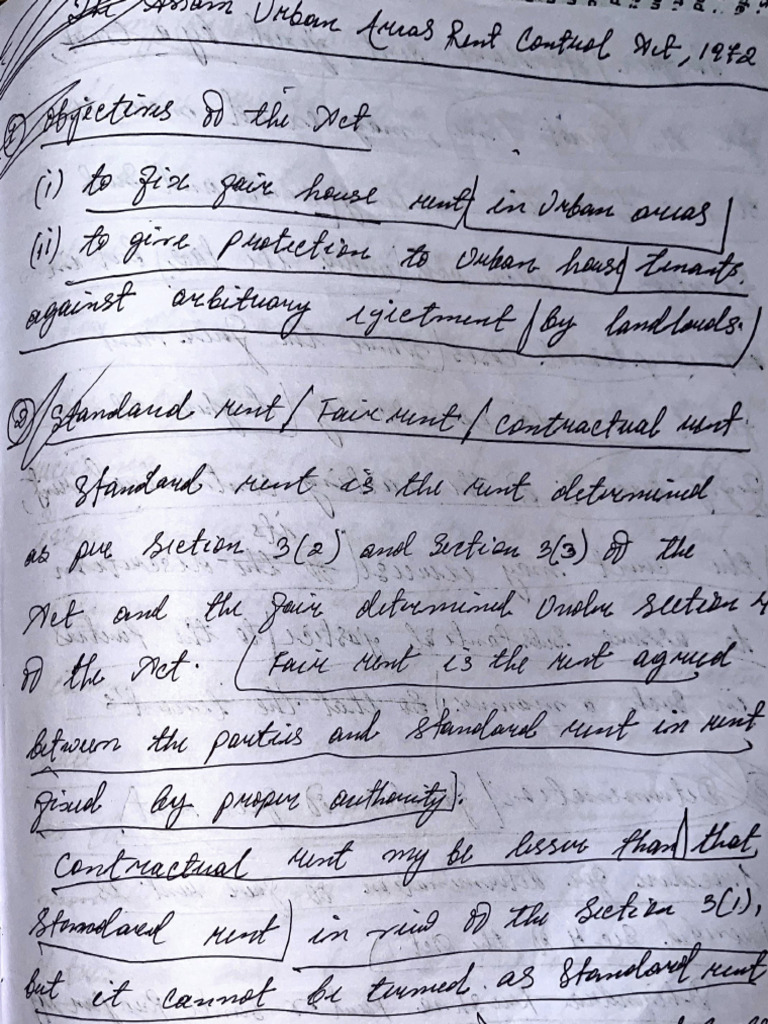 The Assam Urban Areas Rent Control Act, 1972
① Objectives of the Act
(i) to fix fair house rent in Urban areas
(ii) to give protection to Urban house tenants
against arbituary ejectment by landlords.
② Standard rent / Fair rent / contractual rent
Standard rent is the rent determined
as per Section 3(2) and Section 3(3) of the
Act and the fair determined Under Section 4
of the Act. (Fair rent is the rent agreed
between the parties and standard rent in rent
fixed by proper authority).
Contractual rent my be lesser than that
Standard rent) in view of the Section 3(1),
but it cannot be termed as Standard rent